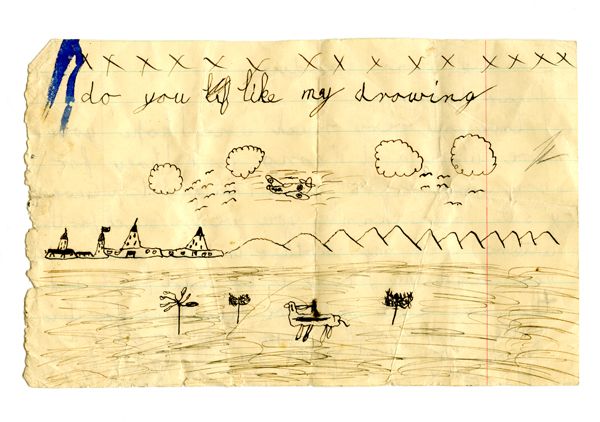 x x x x x x x x x x x x x x x
do you like my drowing